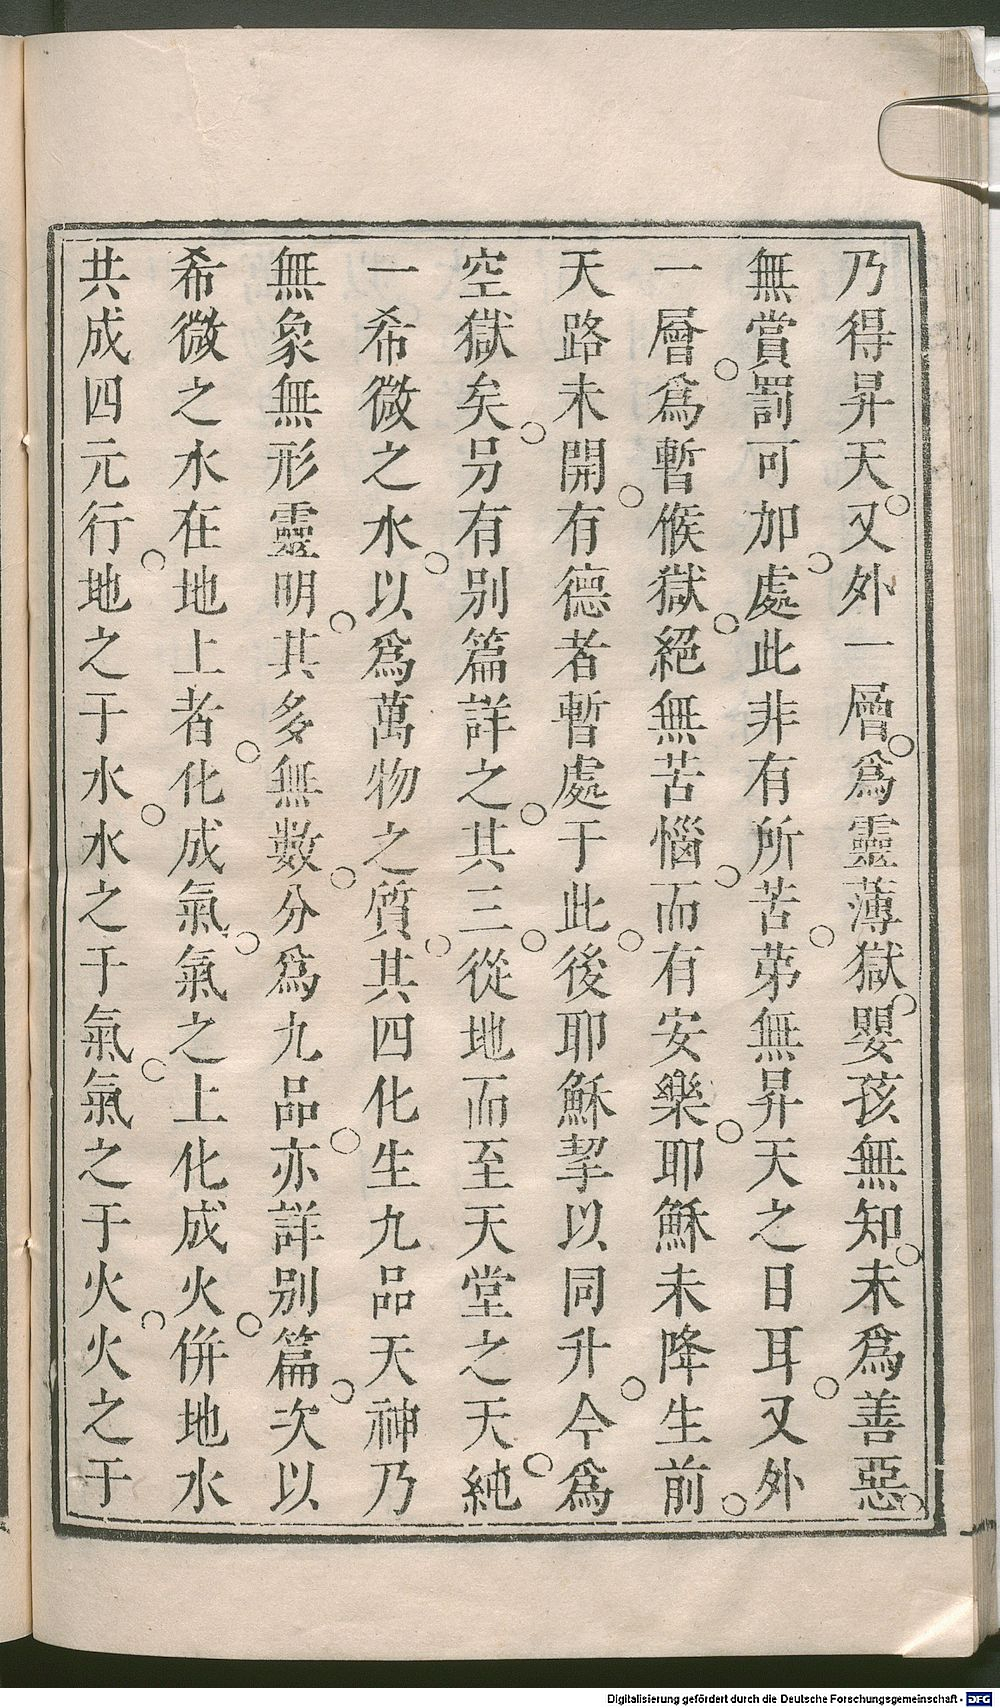 乃得昇天○又外一層○爲靈薄獄○嬰孩無知○未爲善惡○
無賞罰可加○處此非有所苦○苐無昇天之日耳○又外
一層○爲暫候獄○絕無苦惱○而有安樂○耶穌未降生前○
天路未開○有德者暫處于此○後耶穌挈以同升○今爲
空獄矣○另有别篇詳之○其三○從地而至天堂之天○純
一希微之水○以爲萬物之質○其四化生九品天神乃
無象無形靈明○其多無數○分爲九品○亦詳别篇○次以
希微之水在地上者○化成氣○氣之上化成火○併地水
共成四元行○地之于水○水之于氣○氣之于火○火之于
Digitalisierung gefördert durch die Deutsche Forschungsgemeinschaft - DFG